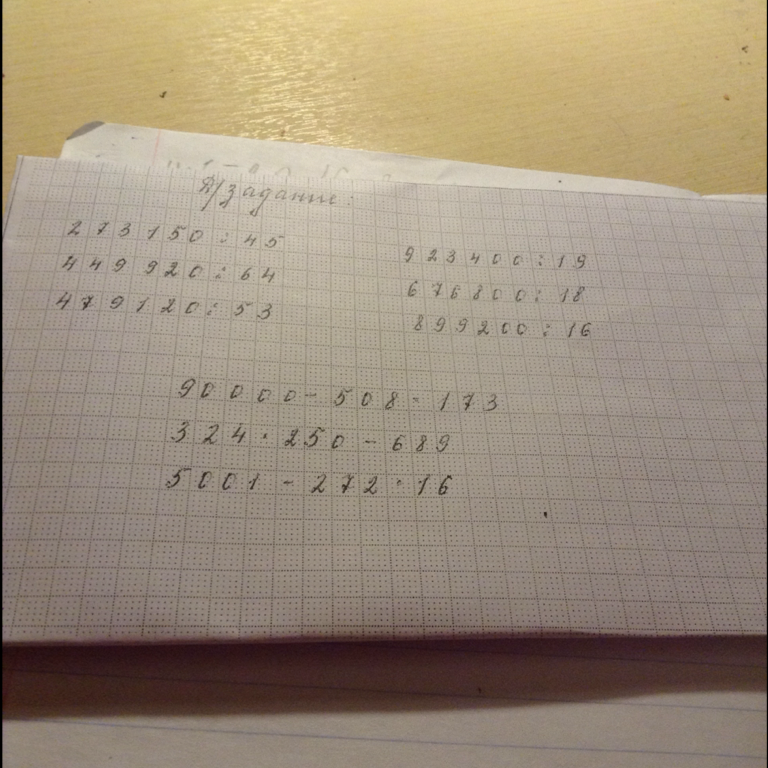 Д/задание:
273150 : 45
449920 : 64
479120 : 53
923400 : 19
676800 : 18
899200 : 16
90000 - 508 · 173
324 · 250 - 689
5001 - 272 · 16